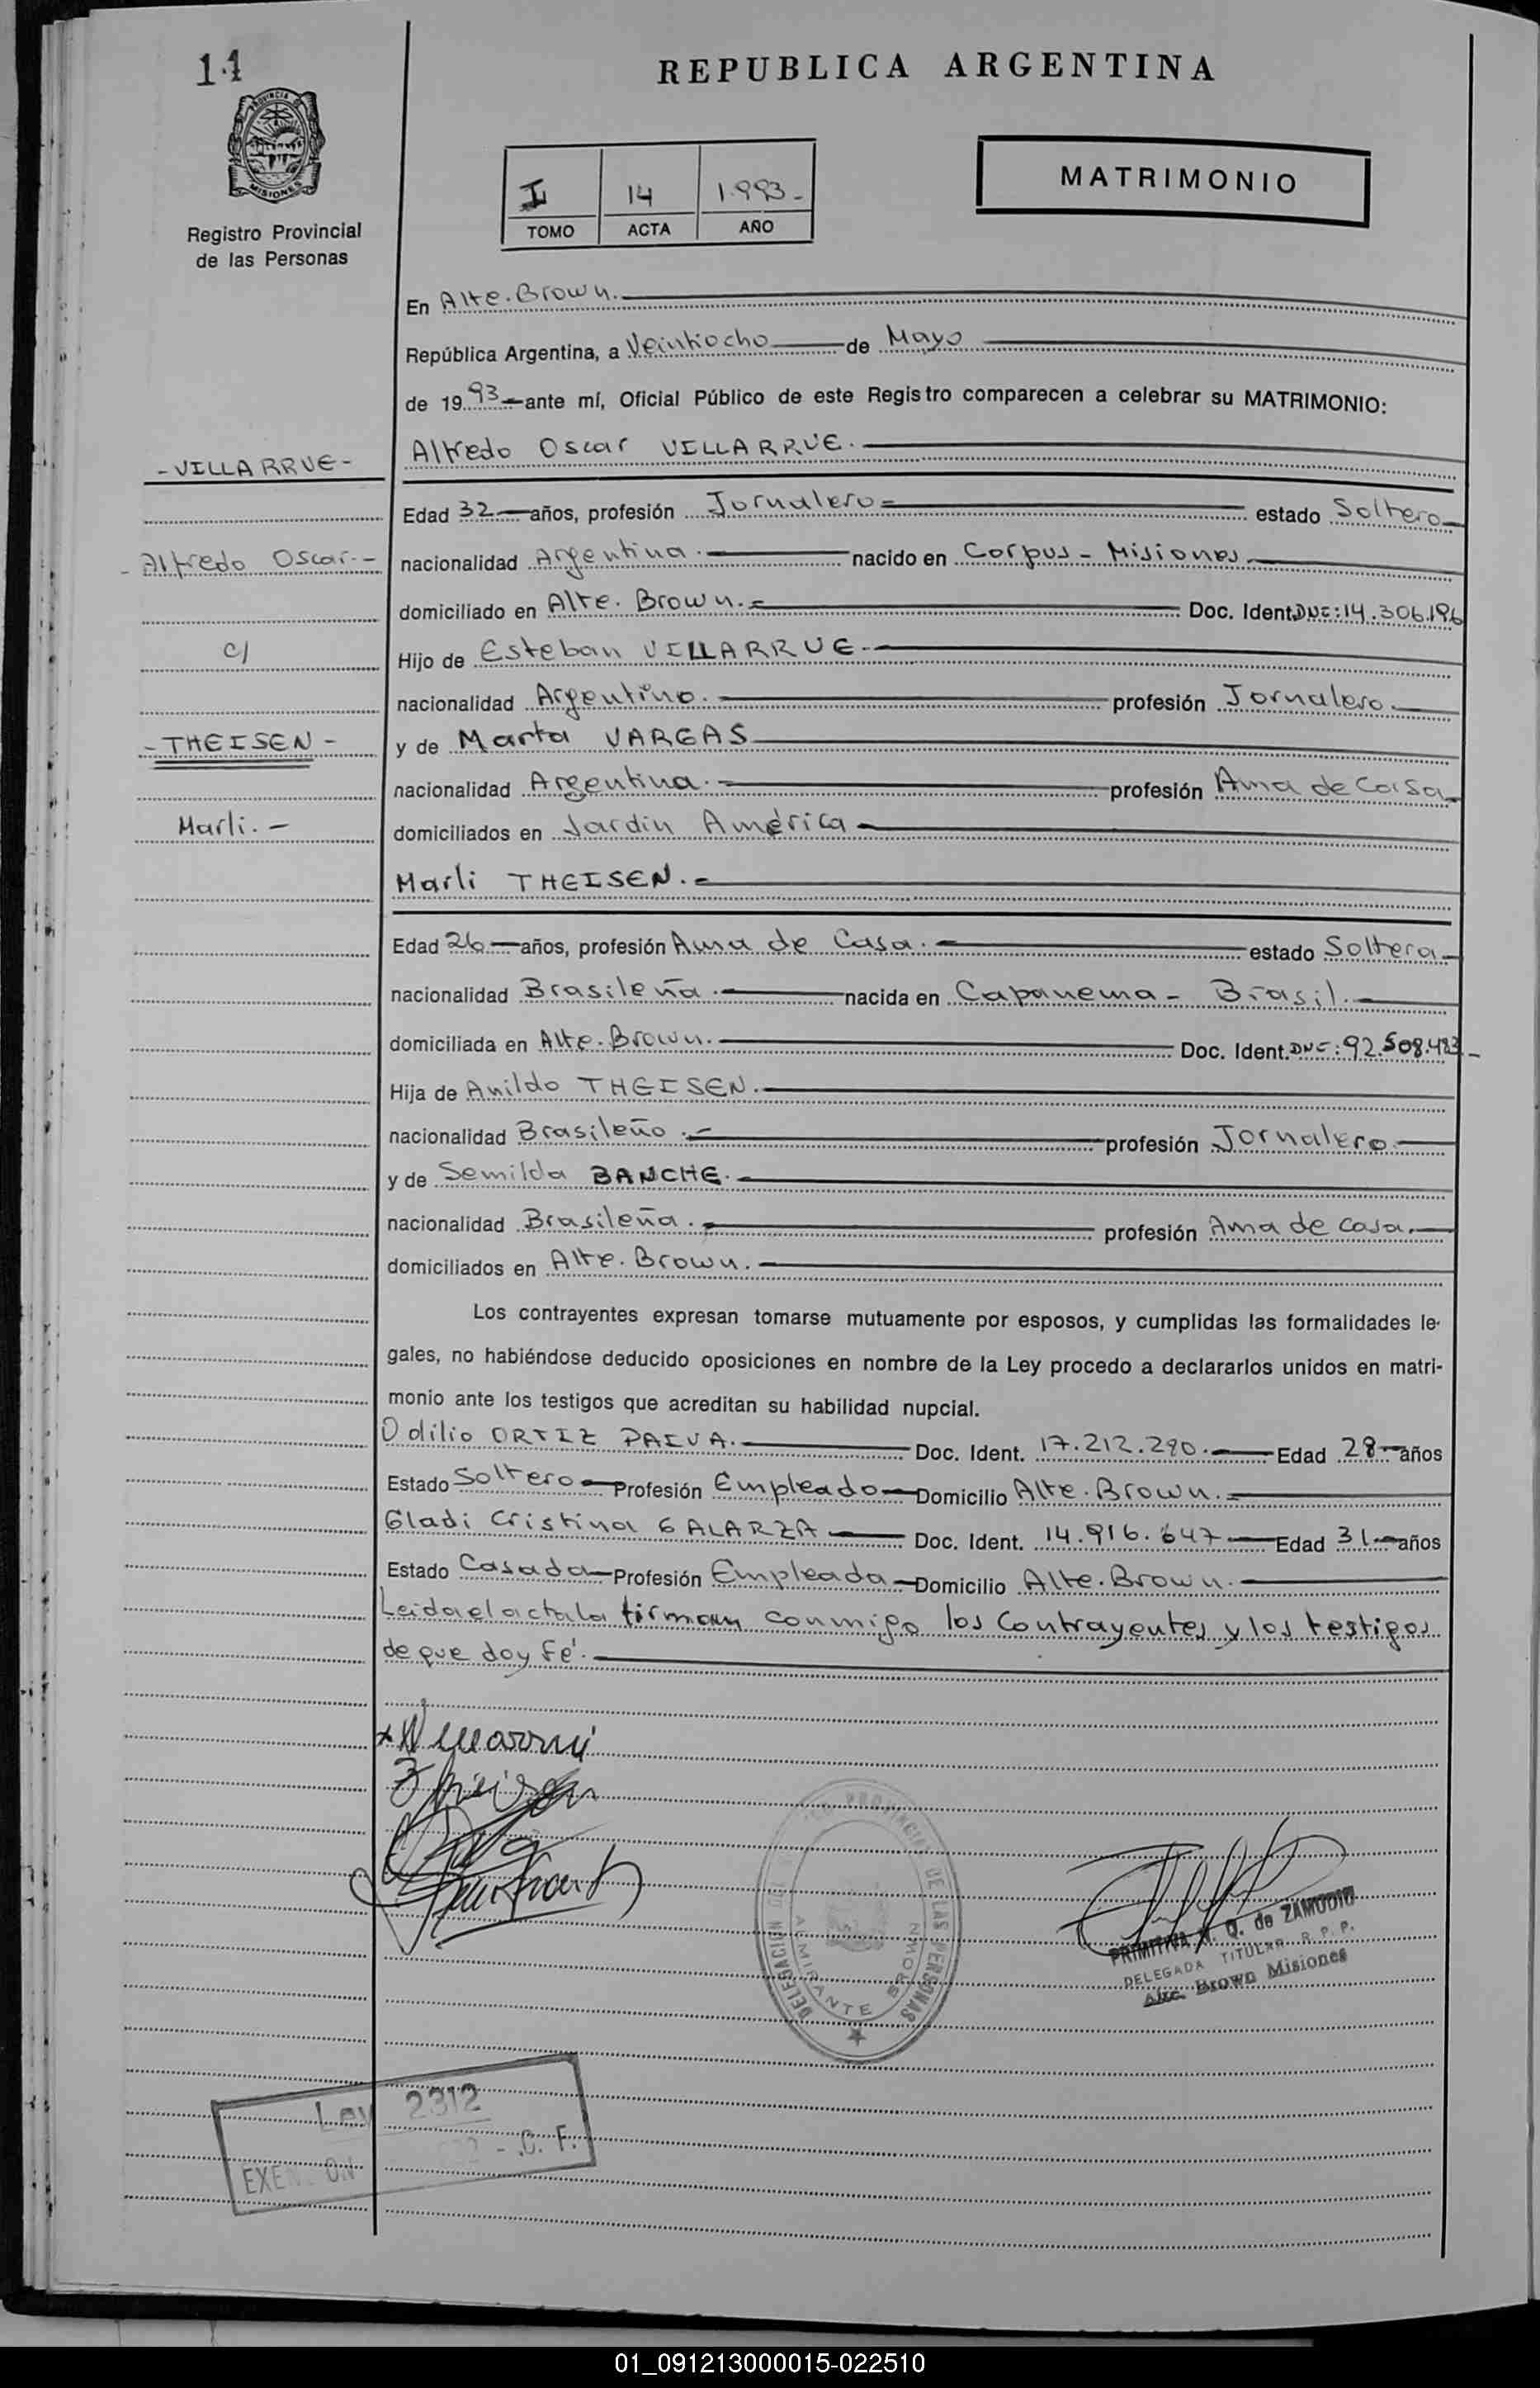 14
REPUBLICA ARGENTINA
PROVINCIA DE
MISIONES
Registro Provincial
de las Personas
I 14 1.993-
TOMO ACTA AÑO
MATRIMONIO
En Alte. Brown.
República Argentina, a Veintiocho de Mayo
de 19 93 ante mí, Oficial Público de este Registro comparecen a celebrar su MATRIMONIO:
-VILLARRUE-
Alfredo Oscar VILLARRUE.
Edad 32 años, profesión Jornalero estado Soltero
-Alfredo Oscar.-
nacionalidad Argentina. nacido en Corpus - Misiones
domiciliado en Alte. Brown. Doc. Ident. DNI: 14.306.196
c/
Hijo de Esteban VILLARRUE
nacionalidad Argentino. profesión Jornalero
-THEISEN-
y de Marta VARGAS
nacionalidad Argentina. profesión Ama de Casa
Marli.-
domiciliados en Jardin América
Marli THEISEN.-
Edad 26 años, profesión Ama de Casa. estado Soltera
nacionalidad Brasileña. nacida en Capanema - Brasil.
domiciliada en Alte. Brown. Doc. Ident. DNI: 92.508.483-
Hija de Anildo THEISEN.
nacionalidad Brasileño.- profesión Jornalero
y de Semilda BANCHE.
nacionalidad Brasileña. profesión Ama de casa.
domiciliados en Alte. Brown.
Los contrayentes expresan tomarse mutuamente por esposos, y cumplidas las formalidades le-
gales, no habiéndose deducido oposiciones en nombre de la Ley procedo a declararlos unidos en matri-
monio ante los testigos que acreditan su habilidad nupcial.
Odilio ORTIZ PAIVA. Doc. Ident. 17.212.290. Edad 28 años
Estado Soltero Profesión Empleado Domicilio Alte. Brown.
Gladi Cristina GALARZA Doc. Ident. 14.916.647 Edad 31 años
Estado Casada Profesión Empleada Domicilio Alte. Brown.
Leida el acta la firman conmigo los contrayentes y los testigos
de que doy Fé.
DELEGACION PROVINCIAL DE LAS PERSONAS
ALMIRANTE BROWN
PRIMITIVA Q. de ZAMUDIO
DELEGADA TITULAR R. P. P.
Alte. Brown Misiones
Ley 2312
- C. F.
01_091213000015-022510